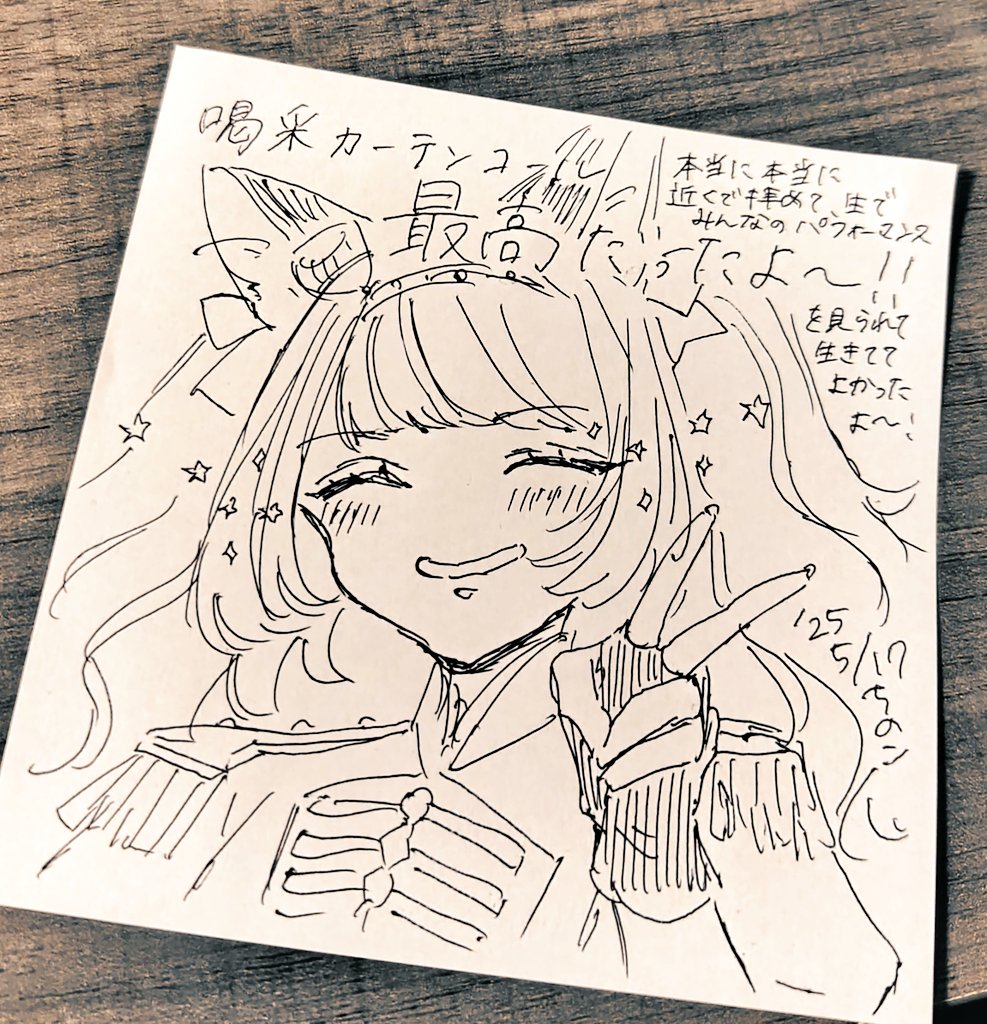 喝采カーテンコール
最高だったよ〜!!
本当に本当に
近くで拝めて 生で
みんなのパフォーマンス
を見られて
生きてて
よかった
よ〜!
'25
5/17